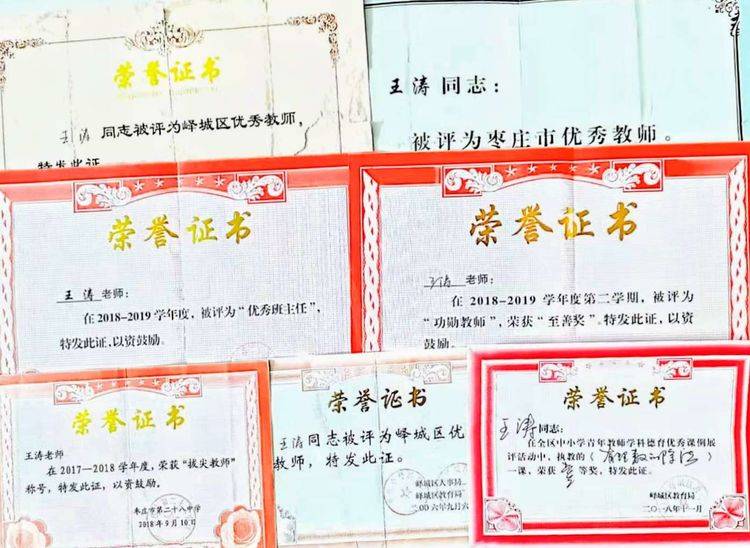 荣誉证书
王涛 同志被评为峄城区优秀教师，
特发此证
王涛同志：
被评为枣庄市优秀教师。
荣誉证书
王涛 老师：
在2018-2019学年度，被评为“优秀班主任”，
特发此证，以资鼓励。
荣誉证书
王涛 老师：
在2018-2019学年度第二学期，被评为
“功勋教师”，荣获“至善奖”。特发此证，以资
鼓励。
荣誉证书
王涛老师
在2017-2018学年度，荣获“拔尖教师”
称号，特发此证，以资鼓励。
枣庄市第二十八中学
2018年9月10日
荣誉证书
王涛同志被评为峄城区优
教师，特发此证。
峄城区人事局
峄城区教育局
2006年9月
荣誉证书
王涛同志：
在全区中小学青年教师学科德育优秀课例展
评活动中，执教的《有理数的
》
一课，荣获壹等奖，特发此证。
峄城区教育局
二〇一八年十一月